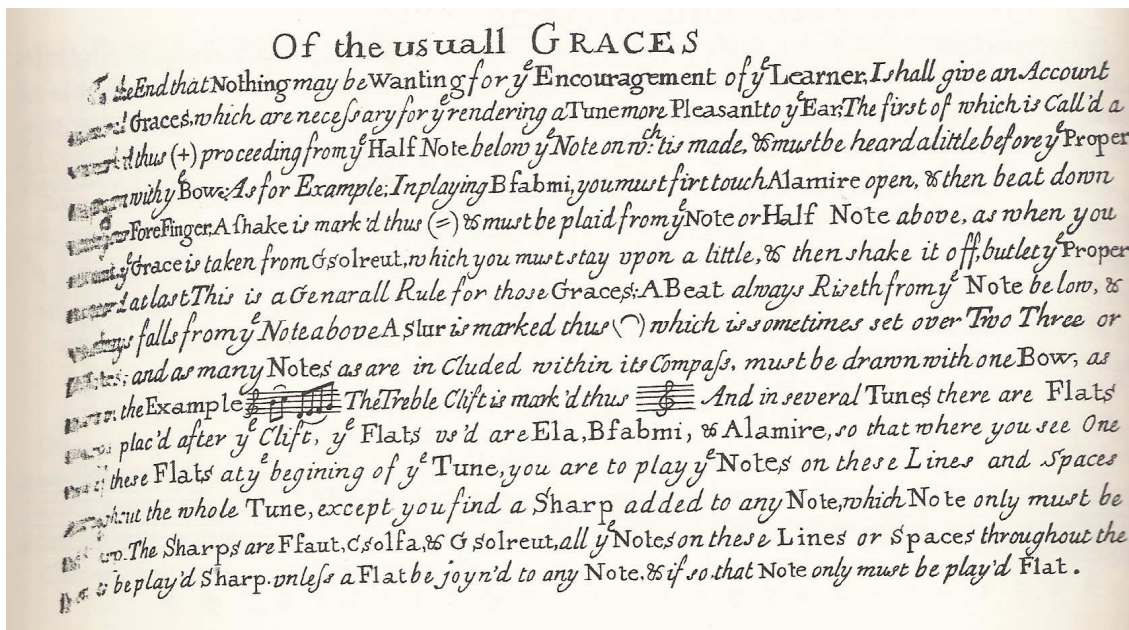 Of the usuall GRACES
the End that Nothing may be Wanting for yᵉ Encouragement of yᵉ Learner, I shall give an Account
Graces, which are neceſsary for yᵉ rendering a Tune more Pleasant to yᵉ Ear. The first of which is Call'd a
thus (+) proceeding from yᵉ Half Note below yᵉ Note on wᶜʰ: tis made, & must be heard a little before yᵉ Proper
with yᵉ Bow: As for Example; In playing B fabmi, you must firt touch Alamire open, & then beat down
Fore Finger, A ſhake is mark'd thus (=) & must be plaid from yᵉ Note or Half Note above, as when you
yᵉ Grace is taken from G solreut, which you must stay vpon a little, & then shake it off, but let yᵉ Proper
at last This is a Genarall Rule for those Graces: A Beat always Riseth from yᵉ Note below, &
falls from yᵉ Note above A slur is marked thus (⁀) which is sometimes set over Two Three or
and as many Notes as are in Cluded within its Compaſs, must be drawn with one Bow, as
the Example The Treble Clift is mark'd thus And in several Tunes there are Flats
plac'd after yᵉ Clift, yᵉ Flats vs'd are Ela, Bfabmi, & Alamire, so that where you see One
these Flats at yᵉ begining of yᵉ Tune, you are to play yᵉ Notes on these Lines and Spaces
the whole Tune, except you find a Sharp added to any Note, which Note only must be
The Sharps are Ffaut, Csolfa, & G solreut, all yᵉ Notes on these Lines or Spaces throughout the
be play'd Sharp. vnleſs a Flat be joyn'd to any Note. & if so that Note only must be play'd Flat.